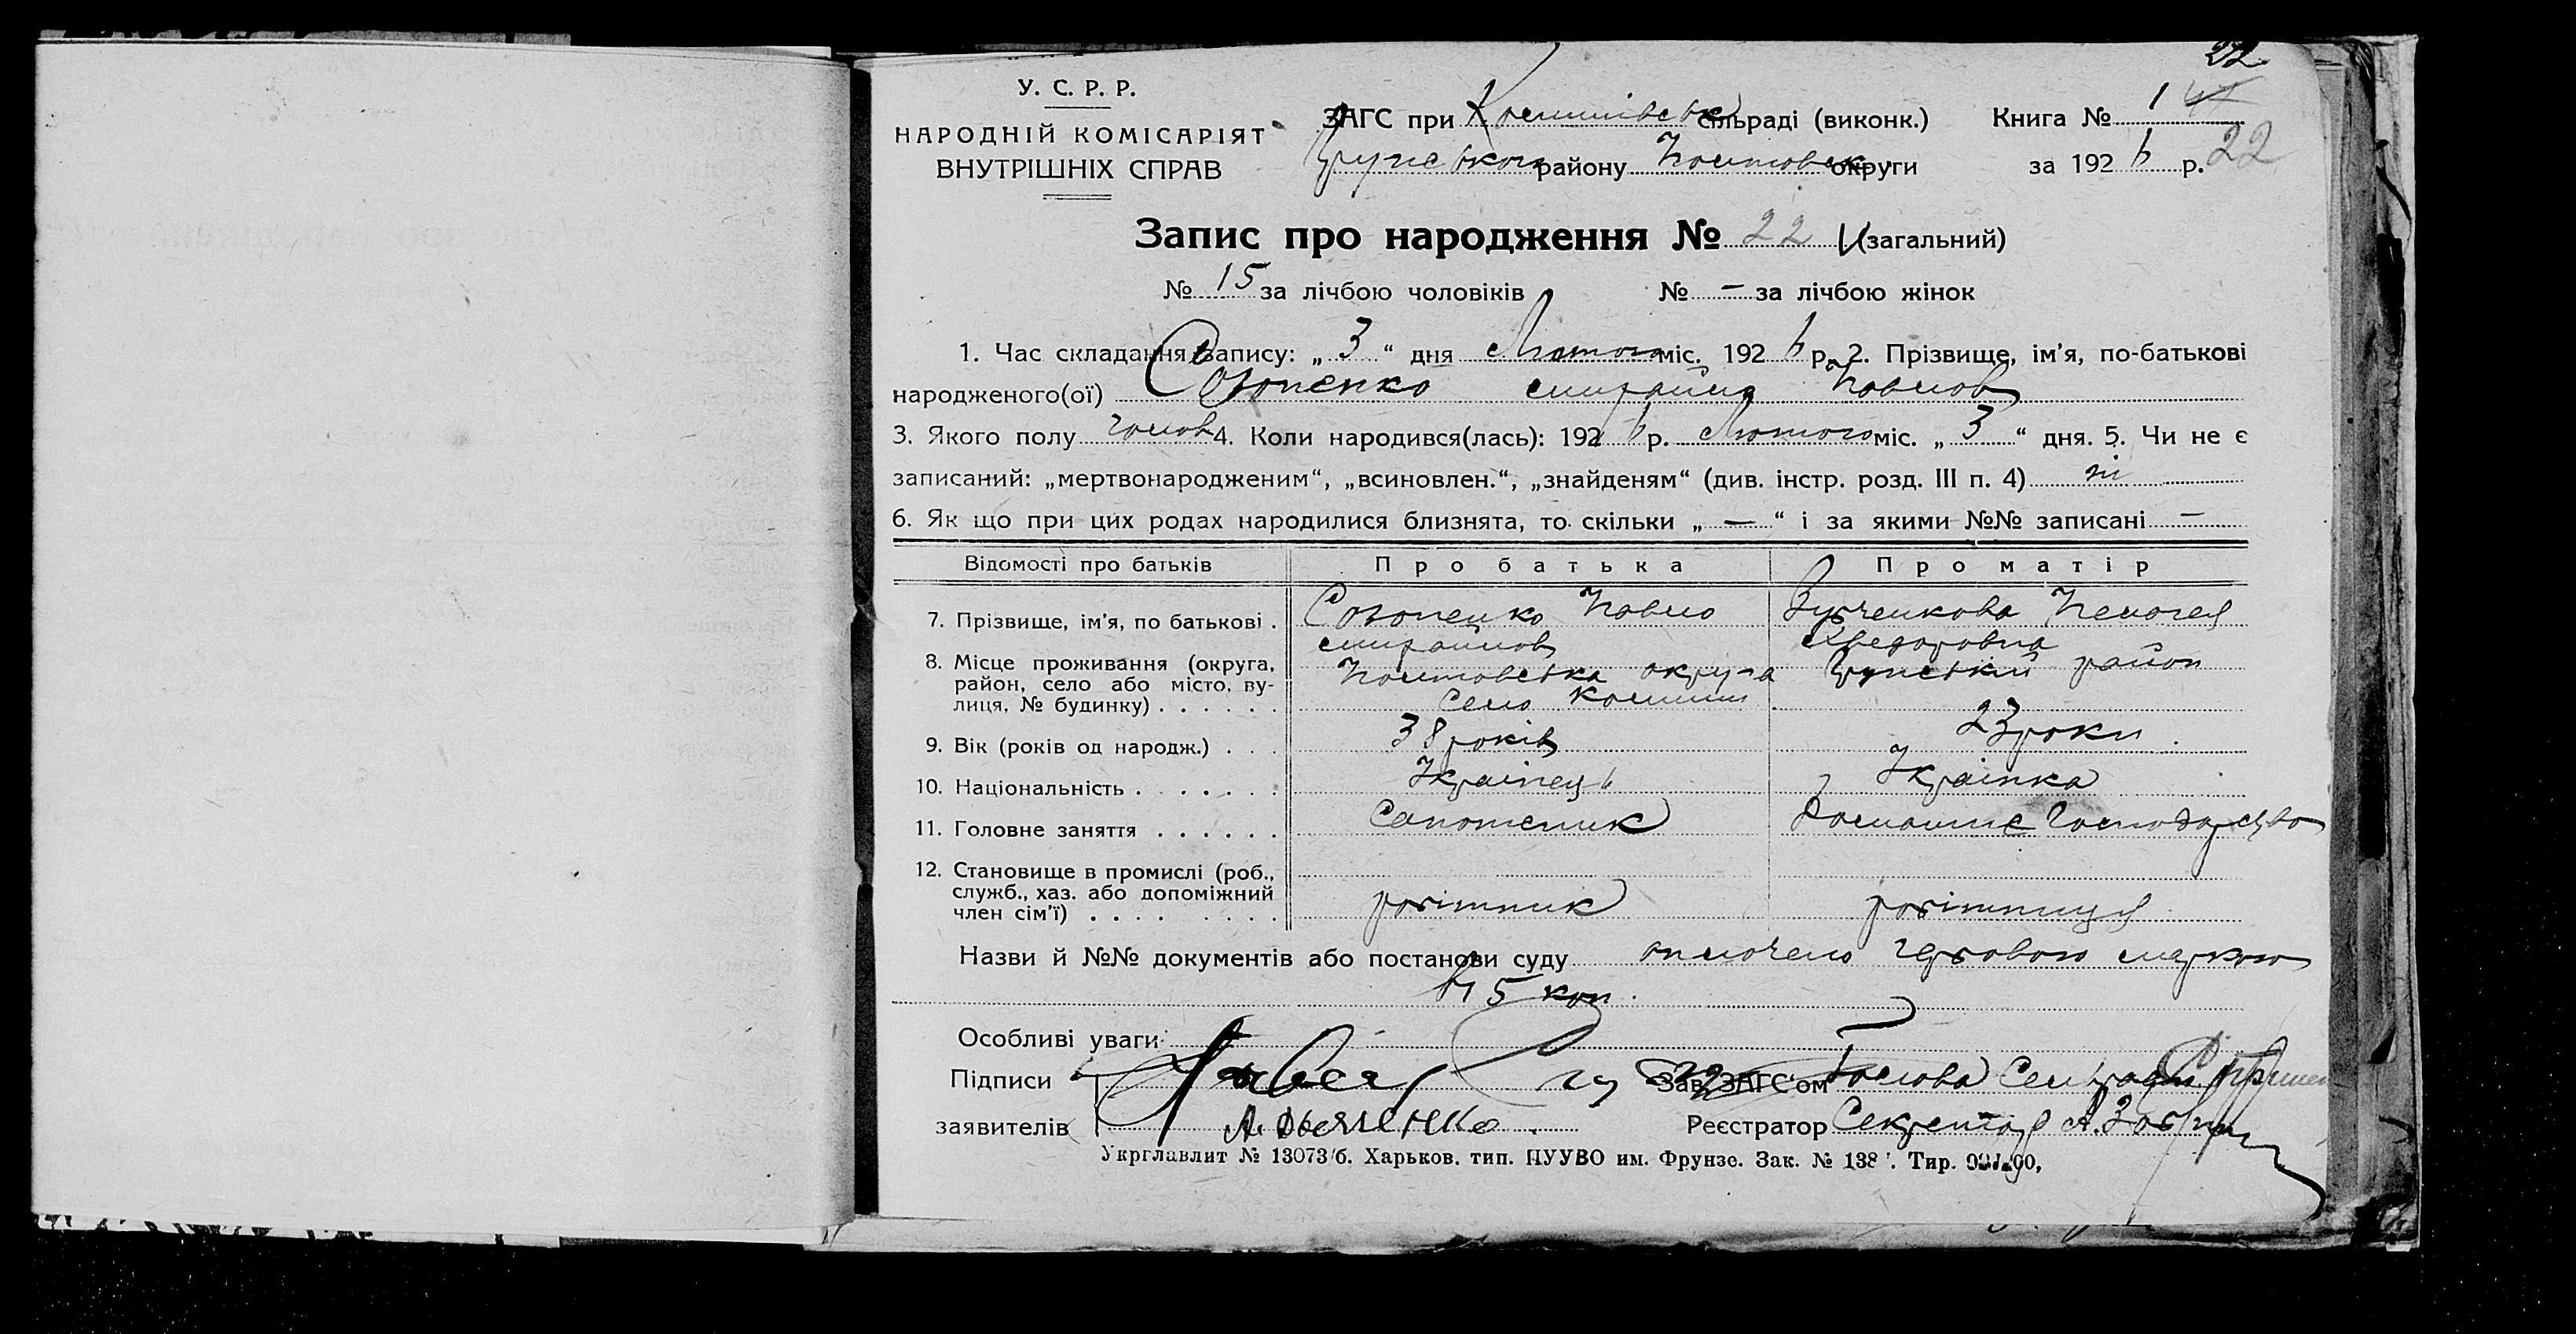 22
У. С. Р. Р.
НАРОДНІЙ КОМІСАРІЯТ
ВНУТРІШНІХ СПРАВ
ЗАГС при сільраді (виконк.) Книга № 1
району округи за 192 6 р. 22
Запис про народження № 22 (загальний)
№ 15 за лічбою чоловіків № — за лічбою жінок
1. Час складання запису: „ 3 “ дня Лютого міс. 192 6 р. 2. Прізвище, ім’я, по-батькові
народженого(ої) Созоненко Павлов
3. Якого полу чолов 4. Коли народився(лась): 192 6 р. Лютого міс. „ 3 “ дня. 5. Чи не є
записаний: „мертвонародженим“, „всиновлен.“, „знайденям“ (див. інстр. розд. III п. 4) ні
6. Як що при цих родах народилися близнята, то скільки „ — “ і за якими №№ записані —
Відомості про батьків Про батька Про матір
7. Прізвище, ім’я, по батькові . Созоненко Павло Зубченкова Пелагея
Хведоровна
8. Місце проживання (округа, Полтовська округа Грунський район
район, село або місто, ву-
лиця, № будинку) . . . . . . Село
9. Вік (років од народж.) . . . 38 років 23 роки.
10. Національність . . . . . . . Українець Українка
11. Головне заняття . . . . . . Сапожник Домашнє Господарство
12. Становище в промислі (роб.,
служб., хаз. або допоміжний
член сім’ї) . . . . . . . . . робітник робітниця
Назви й №№ документів або постанови суду оплочено гербовою маркою
в 15 коп.
Особливі уваги
Підписи Зав. ЗАГС’ом Голова Сельради
заявителів Реєстратор Секретар
Укрглавлит № 13073/б. Харьков. тип. ПУУВО им. Фрунзе. Зак. № 138 Тир.